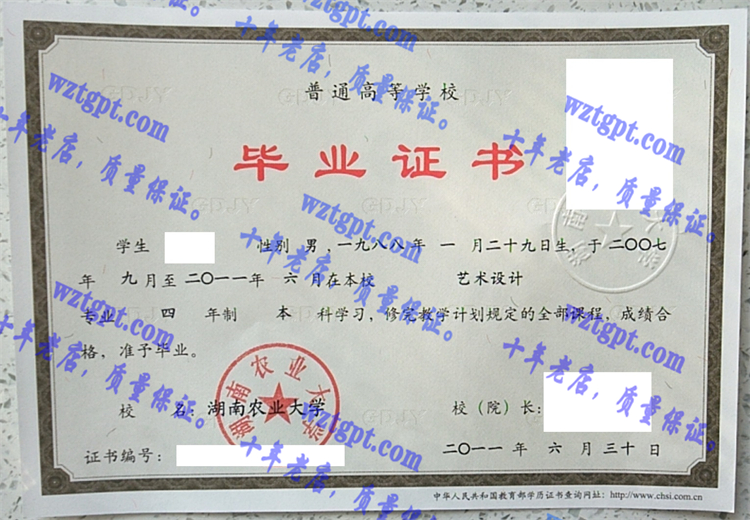 普通高等学校
毕业证书
学生 性别 男 ,一九八八年 一 月二十九日生, 于二〇〇七
年 九 月至 二〇一一年 六 月在本校 艺术设计
专业 四 年制 本 科学习, 修完教学计划规定的全部课程, 成绩合
格, 准予毕业。
校 名: 湖南农业大学 校（院）长:
湖南农业大学
证书编号: 二〇一一 年 六 月 三十 日
中华人民共和国教育部学历证书查询网址: http://www.chsi.com.cn
wztgpt.com
十年老店, 质量保证。
wztgpt.com
十年老店, 质量保证。
wztgpt.com
十年老店, 质量保证。
wztgpt.com
十年老店, 质量保证。
wztgpt.com
十年老店, 质量保证。
wztgpt.com
十年老店, 质量保证。
wztgpt.com
十年老店, 质量保证。
wztgpt.com
十年老店, 质量保证。
wztgpt.com
十年老店, 质量保证。